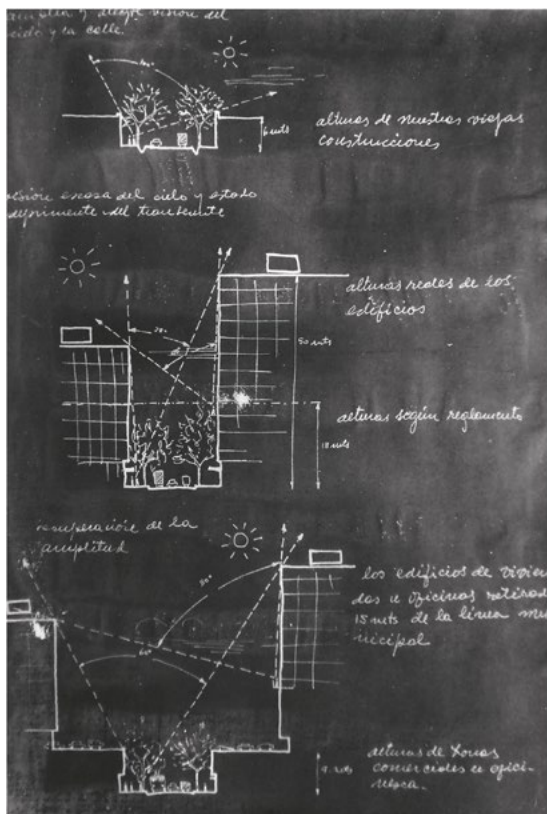 amplia y alegre visión del
cielo y la calle.
60°
alturas de nuestras viejas
construcciones
6 mts
visión escasa del cielo y estado
deprimente del transeunte
alturas reales de los
edificios
50 mts
alturas según reglamento
18 mts
recuperación de la
amplitud
los edificios de vivien
das u oficinas retirad
15 mts de la línea mu
nicipal
alturas de zonas
comerciales u ofici-
nesca.